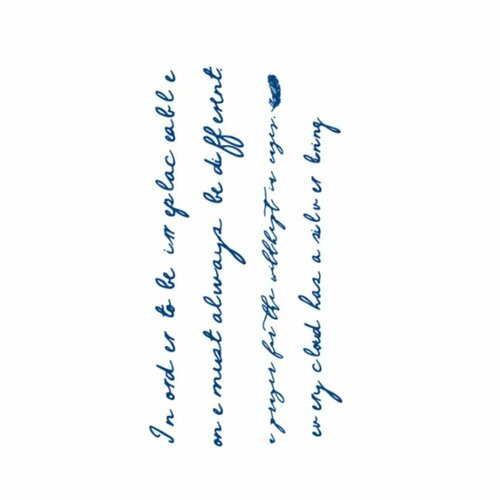 In order to be irreplaceable
one must always be different.
a prayer for the wild kept in cages.
every cloud has a silver lining